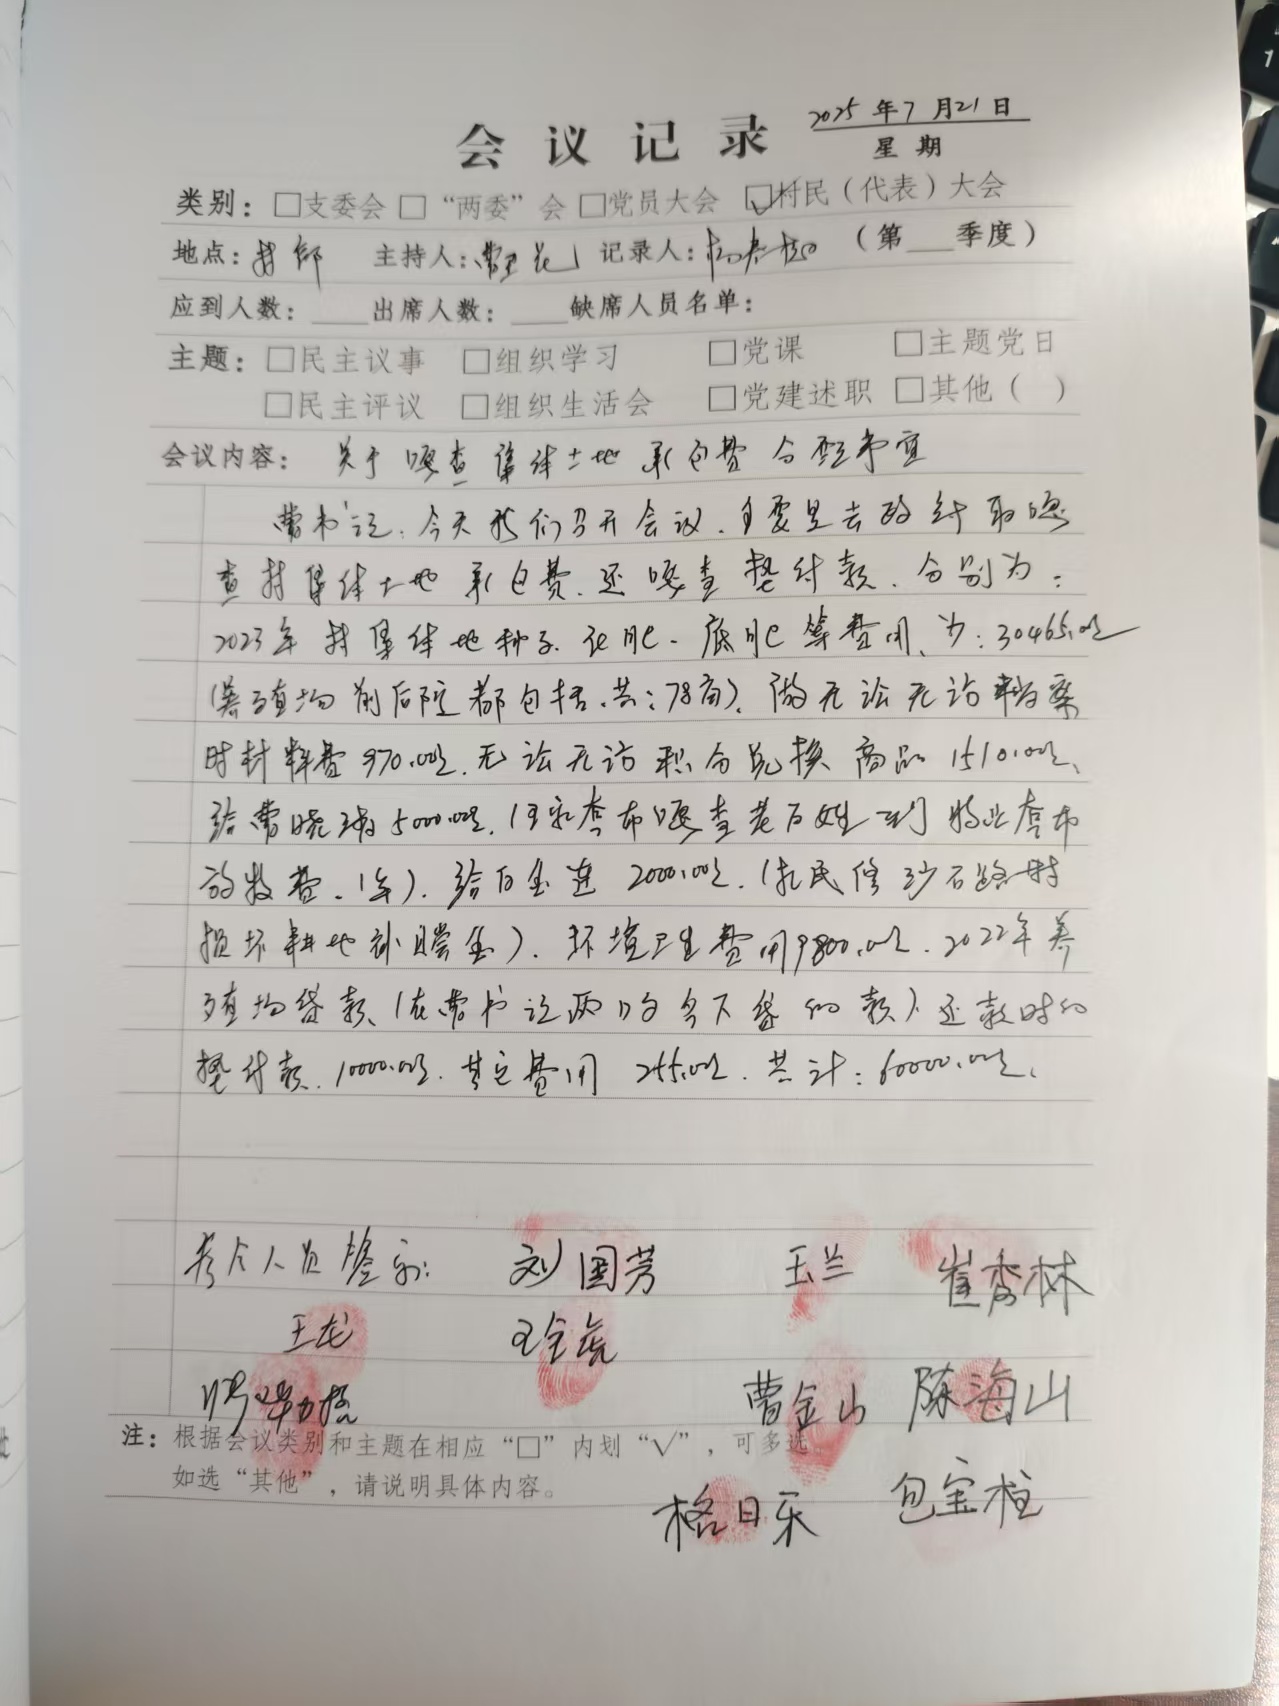 会议记录 2025年7月21日
星期
类别：□支委会 □“两委”会 □党员大会 ☑村民（代表）大会
地点：村部 主持人： 记录人： （第 季度）
应到人数： 出席人数： 缺席人员名单：
主题：□民主议事 □组织学习 □党课 □主题党日
□民主评议 □组织生活会 □党建述职 □其他（ ）
会议内容：关于嘎查集体土地承包费分配事宜
曹书记：今天我们召开会议，主要是去政府取嘎
查村集体土地承包费，还嘎查垫付款，分别为：
2023年村集体地种子、化肥、底肥等费用、为：30465.00元
（养殖场前后院都包括，共：78亩）、做无讼无访档案
时材料费970.00元、无讼无访积分兑换商品1510.00元、
给曹晓 5000.00元，（ 嘎查老百姓到
放牧费、1年）、给白金莲2000.00元，（扎民修砂石路时
损坏耕地补偿金）、环境卫生费用9800.00元、2022年养
殖场贷款、（在曹书记两口的名下贷的款）还款时的
垫付款、10000.00元、其它费用255.00元、共计：60000.00元、
参会人员签字： 刘国芳 玉兰 崔秀林
王龙 王金虎
曹金山 陈海山
注：根据会议类别和主题在相应“□”内划“√”，可多选。
如选“其他”，请说明具体内容。
格日乐 包宝柱